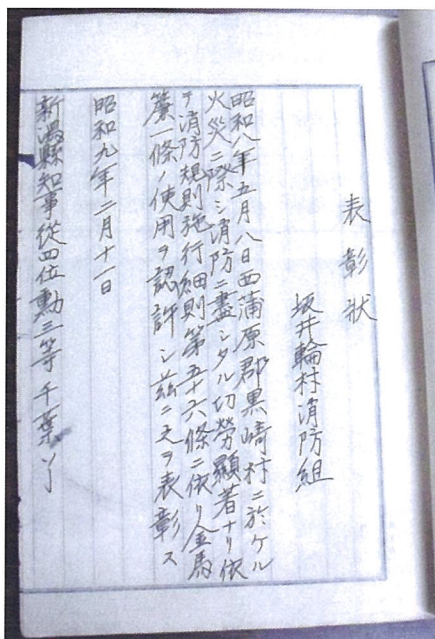 表彰状
坂井輪村消防組
昭和八年五月八日西蒲原郡黒崎村ニ於ケル
火災ニ際シ消防ニ盡シタル功労顕著ナリ依
テ消防規則施行細則第五十六條ニ依リ金馬
簾一條ノ使用ヲ認許シ茲ニ之ヲ表彰ス
昭和九年二月十一日
新潟縣知事從四位勳三等千葉了